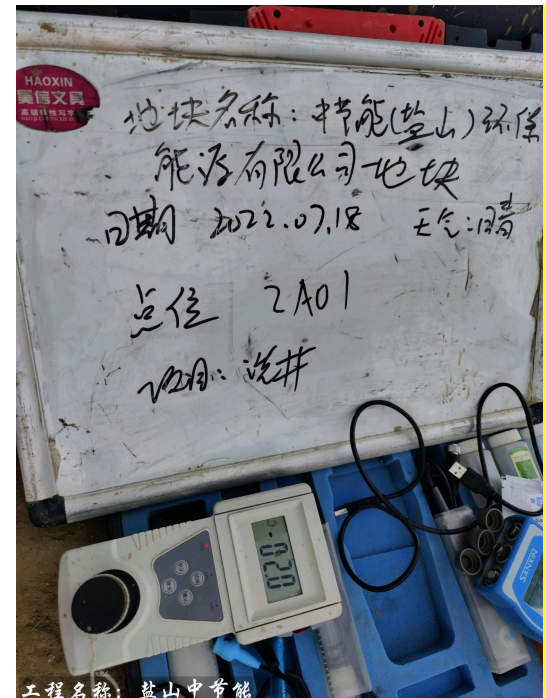 HAOXIN
昊信文具
地块名称：中节能(盐山)环保
能源有限公司地块
日期 2022.07.18 天气：晴
点位 2A01
项目：洗井
020.0
SANXIN
工程名称：盐山中节能